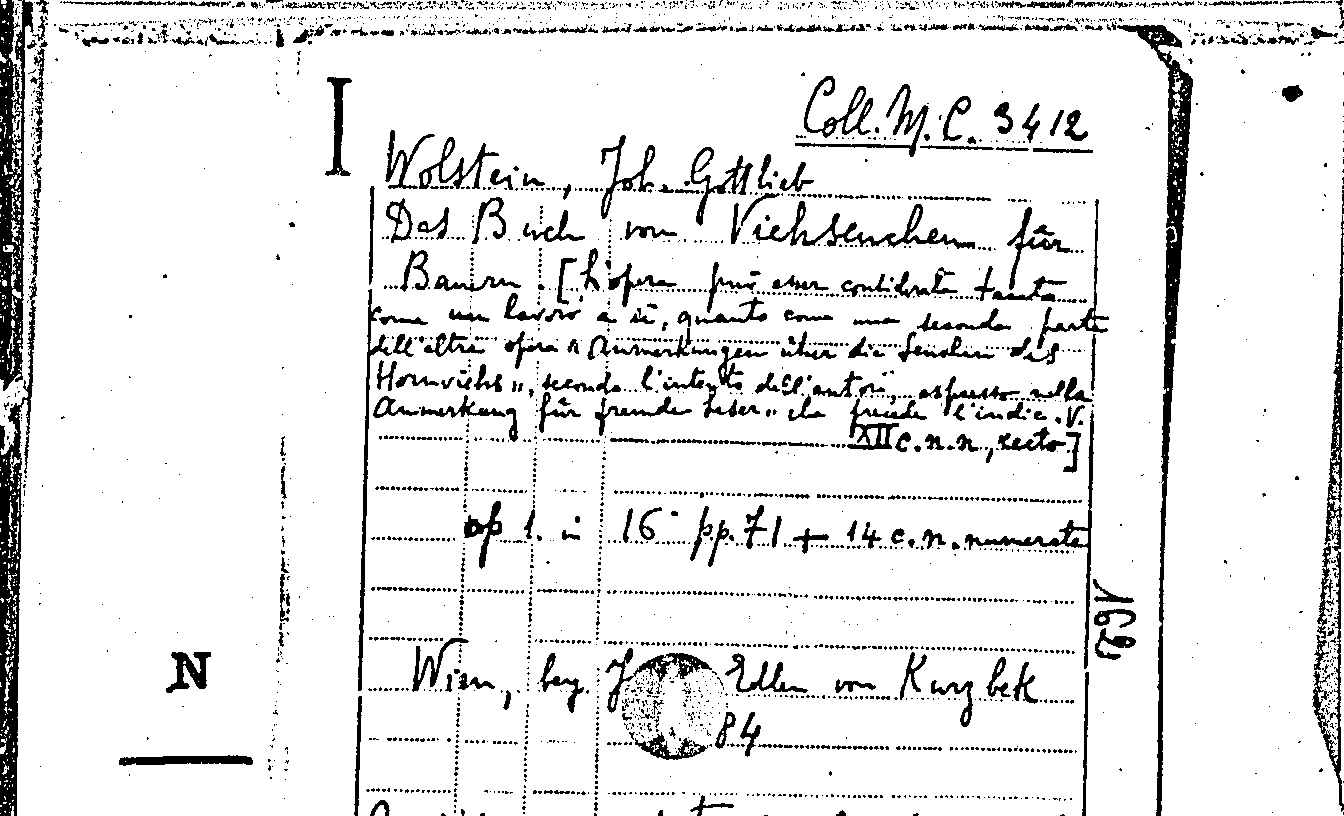 I
Coll. M. C. 3412
Wolstein, Joh. Gottlieb
Das Buch von Viehseuchen für
Bauern. [L'opera può esser considerata tanto
come un lavoro a sè, quanto come una seconda parte
dell'altra opera "Anmerkungen über die Seuchen des
Hornviehs", secondo l'intento dell'autore, espresso nella
Anmerkung für fremde Leser" che precede l'indic. V.
XII c. n. n., recto]
op 1. in 16° pp. 71 + 14 c. n. numerate
162
N
Wien, bey J Edlen von Kurzbek
84